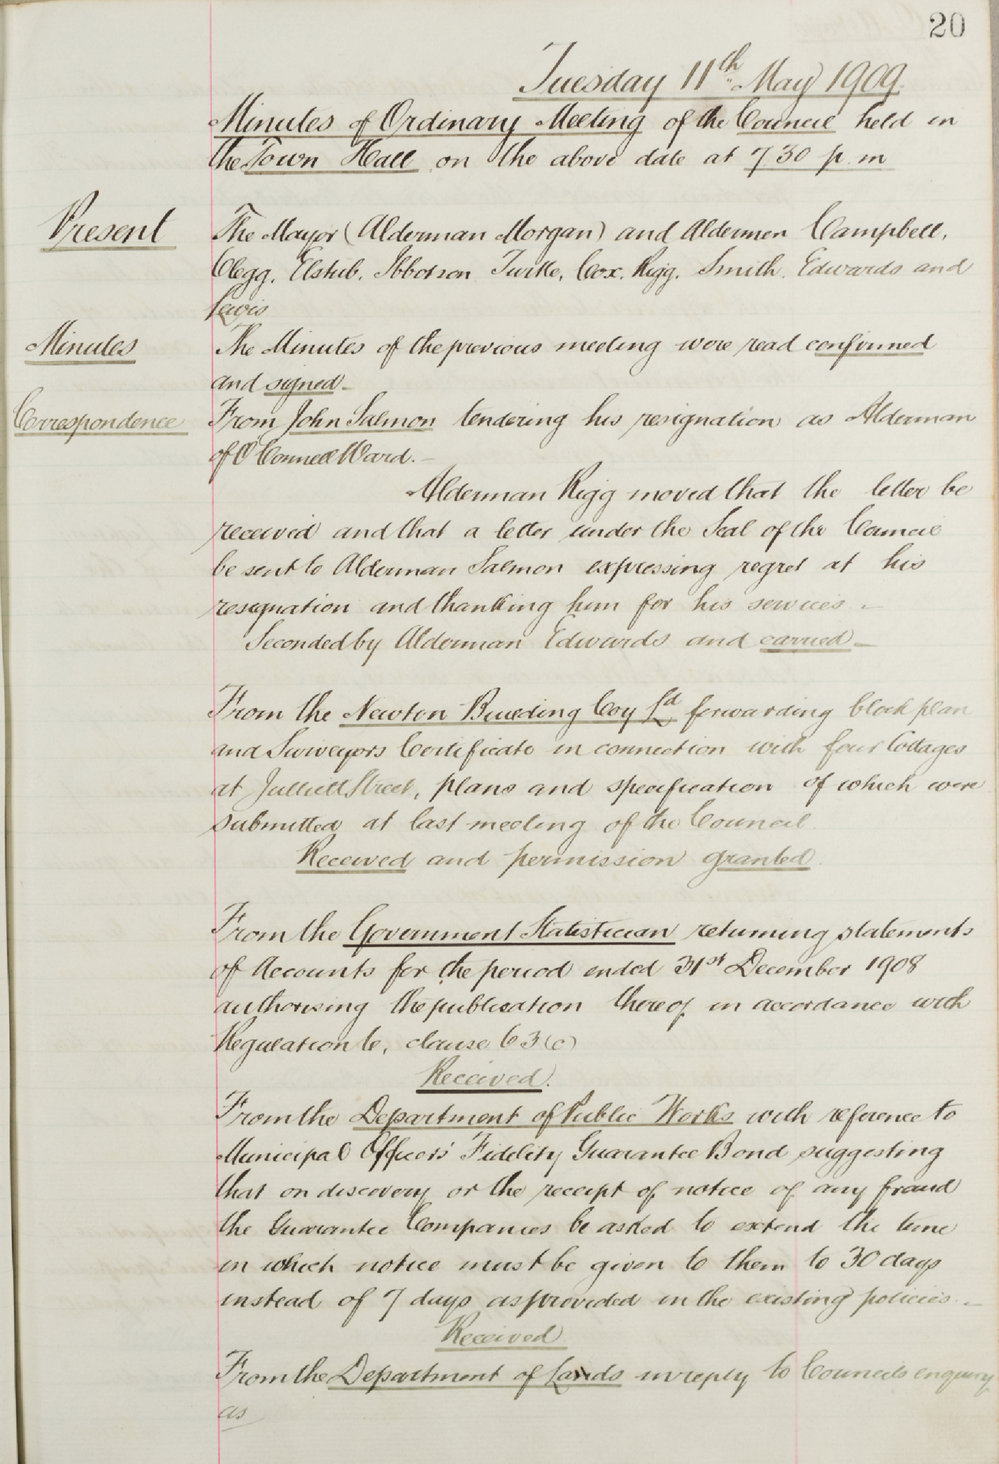 20
Tuesday 11th May 1909.
Minutes of Ordinary Meeting of the Council held in
the Town Hall on the above date at 7 30 p m
Present
The Mayor (Alderman Morgan) and Aldermen Campbell,
Clegg, Elstub, Ibbotson Turtle, Cox, Rigg, Smith, Edwards and
Lewis
Minutes
The Minutes of the previous meeting were read confirmed
and signed -
Correspondence
From John Salmon tendering his resignation as Alderman
of O'Connell Ward. -
Alderman Rigg moved that the letter be
received and that a letter under the Seal of the Council
be sent to Alderman Salmon expressing regret at his
resignation and thanking him for his services -
Seconded by Alderman Edwards and carried -
From the Newton Building Coy Ld forwarding block plan
and Surveyors Certificate in connection with four Cottages
at Street, plans and specification of which were
submitted at last meeting of the Council
Received and permission granted.
From the Government Statistician returning statements
of Accounts for the period ended 31st December 1908
authorising the publication thereof in accordance with
Regulation 6, clause 63 (c)
Received.
From the Department of Public Works with reference to
Municipal Officers' Fidelity Guarantee Bond suggesting
that on discovery or the receipt of notice of any fraud
the Guarantee Companies be asked to extend the time
in which notice must be given to them to 30 days
instead of 7 days as provided in the existing policies. -
Received
From the Department of Lands in reply to Councils enquiry
as